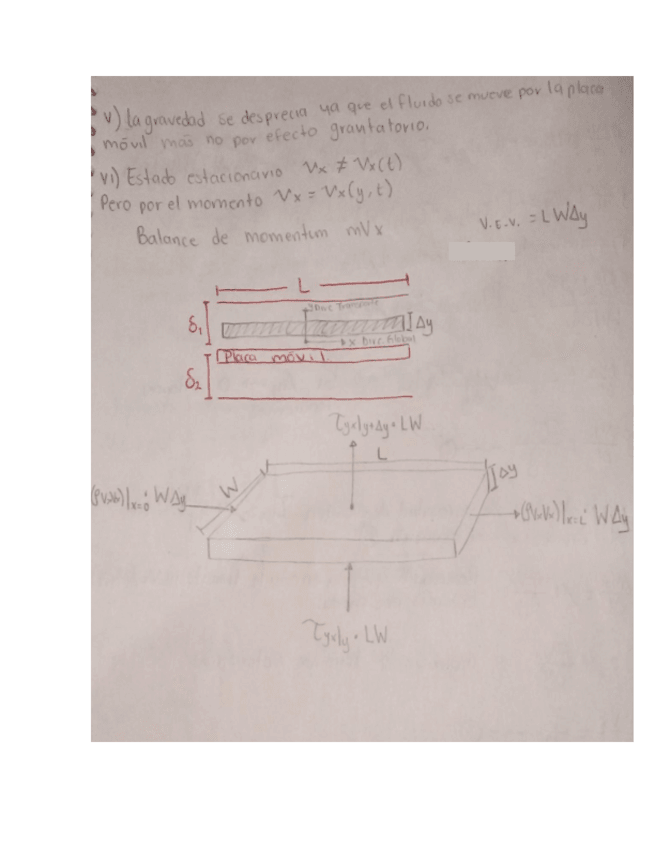 v) la gravedad se desprecia ya que el fluido se mueve por la placa
móvil más no por efecto gravitatorio.
vi) Estado estacionario Vx ≠ Vx(t)
Pero por el momento Vx = Vx(y,t)
Balance de momentum mVx
V.E.V. = LWΔy
L
y Dirc Transporte
δ₁
Δy
x Dirc Global
Placa móvil
δ₂
τyx|y+Δy · LW
L
W
Δy
(ρVxVx)|x=0 · WΔy
(ρVxVx)|x=L · WΔy
τyx|y · LW